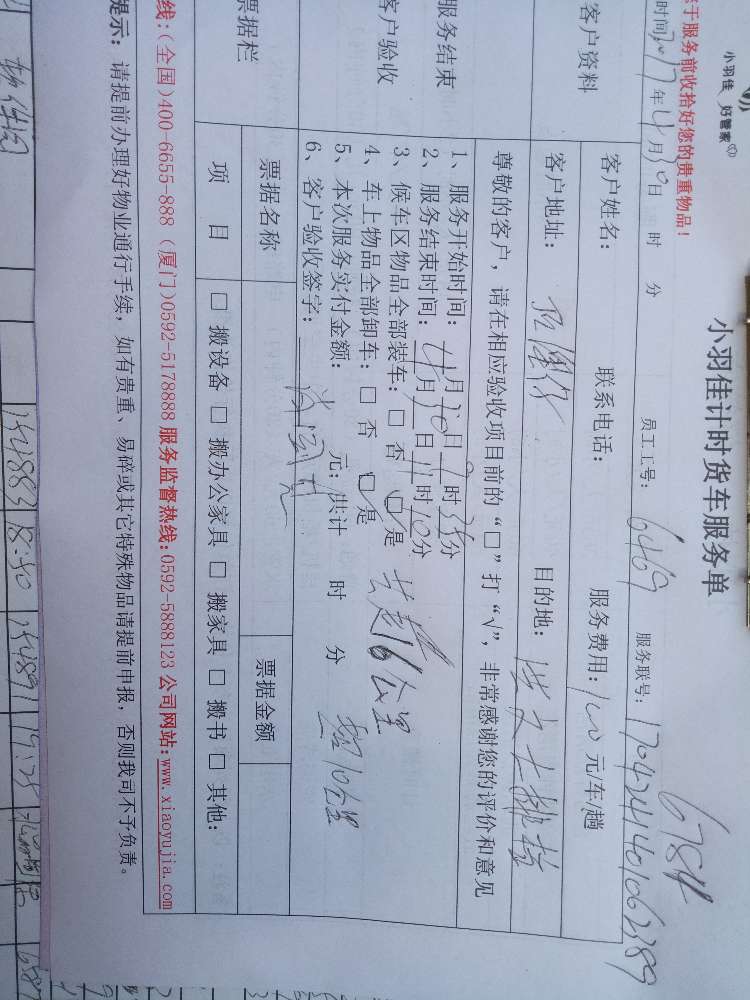 小羽佳 好管家
小羽佳计时货车服务单
6784
于服务前收拾好您的贵重物品！
时间2017年4月30日 时 分 员工工号：6469 服务联号：1704241401062389
客户资料
客户姓名： 联系电话： 服务费用：100元/车/趟
客户地址： 目的地：
服务结束
客户验收
尊敬的客户，请在相应验收项目前的“□”打“√”，非常感谢您的评价和意见
1、服务开始时间：4月30日9时35分
2、服务结束时间： 月 日11时10分
3、候车区物品全部装车：□ 否 □ 是
4、车上物品全部卸车：□ 否 □ 是
共超16公里
5、本次服务实付金额： 元；共计 时 分
超10公里
6、客户验收签字：
票据栏
票据名称 票据金额
项 目 □ 搬设备 □ 搬办公家具 □ 搬家具 □ 搬书 □ 其他：
线：(全国)400-6655-888 (厦门)0592-5178888 服务监督热线：0592-5888123 公司网站：www.xiaoyujia.com
提示：请提前办理好物业通行手续，如有贵重、易碎或其它特殊物品请提前申报，否则我司不予负责。
154883 18:40 154891 19:25